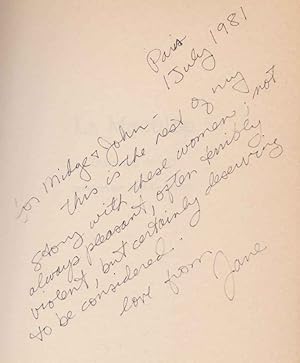 Paris
1 July 1981
for Midge & John -
this is the rest of my
story with these women, not
always pleasant, often terribly
violent, but certainly deserving
to be considered.
love from
Jane